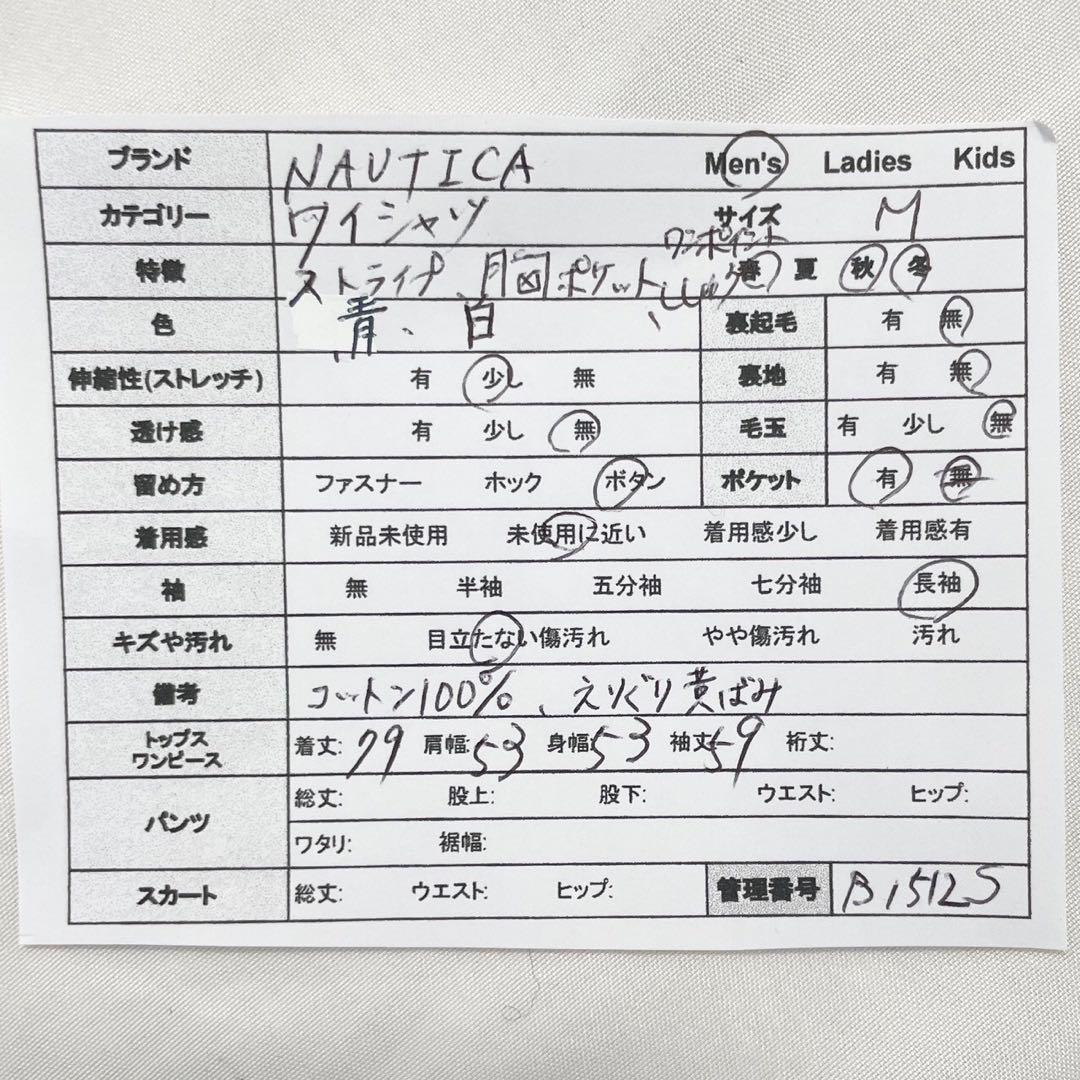 ブランド NAUTICA Men's Ladies Kids
カテゴリー ワイシャツ サイズ M
ワンポイント
特徴 ストライプ、胸ポケット、ししゅう 春 夏 秋 冬
色 青、白 裏起毛 有 無
伸縮性(ストレッチ) 有 少し 無 裏地 有 無
透け感 有 少し 無 毛玉 有 少し 無
留め方 ファスナー ホック ボタン ポケット 有 無
着用感 新品未使用 未使用に近い 着用感少し 着用感有
袖 無 半袖 五分袖 七分袖 長袖
キズや汚れ 無 目立たない傷汚れ やや傷汚れ 汚れ
備考 コットン100%、えりぐり黄ばみ
トップス ワンピース 着丈: 79 肩幅: 53 身幅: 53 袖丈: 59 裄丈:
パンツ 総丈: 股上: 股下: ウエスト: ヒップ:
ワタリ: 裾幅:
スカート 総丈: ウエスト: ヒップ: 管理番号 B1512S